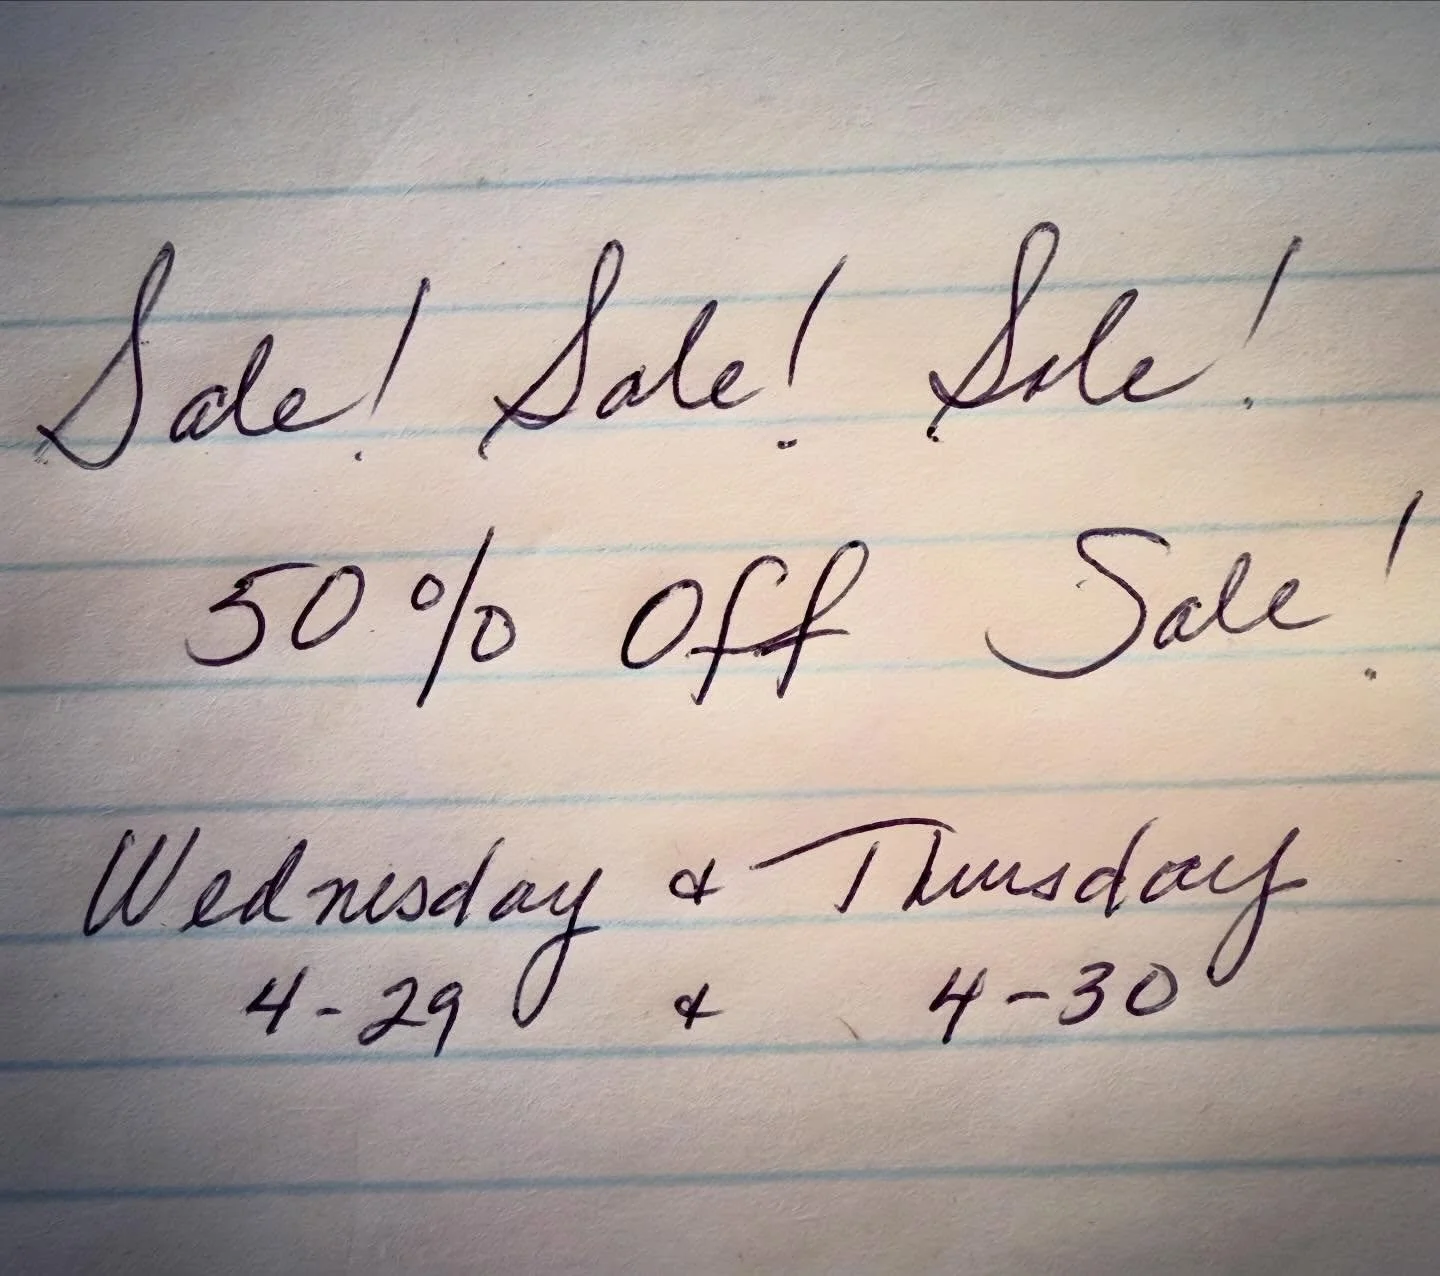 Sale! Sale! Sale!
50% Off Sale!
Wednesday & Thursday
4-29 & 4-30